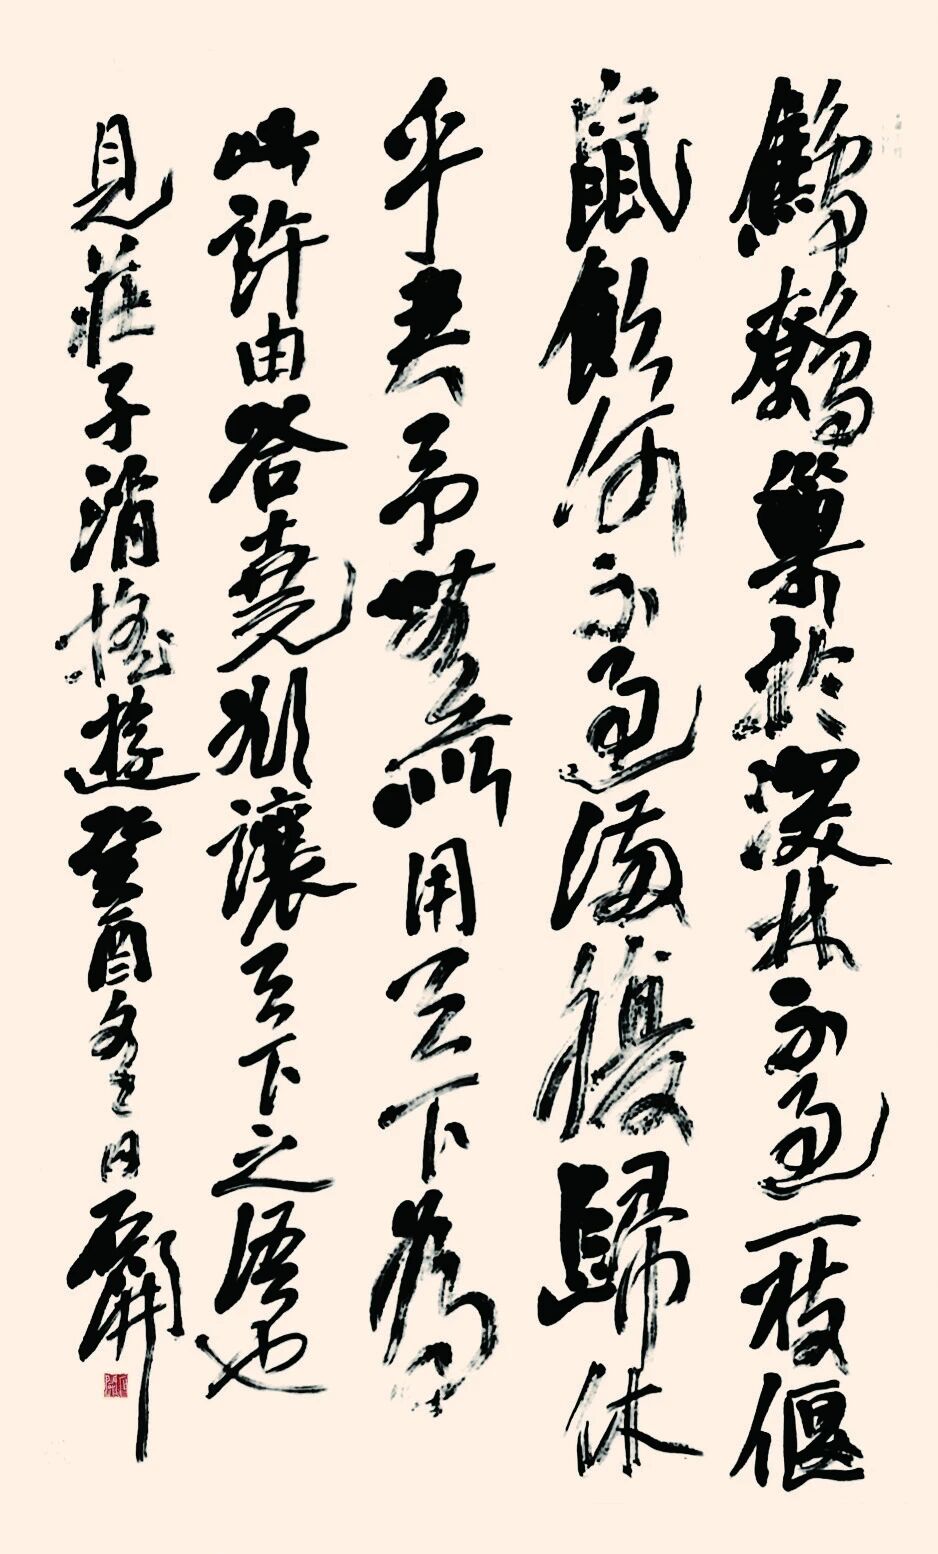 鷦鷯巢於深林不過一枝偃
鼠飲河不過滿腹歸休
乎君予無所用天下為
此許由答堯欲讓天下之語也
見莊子消搖遊癸酉冬日